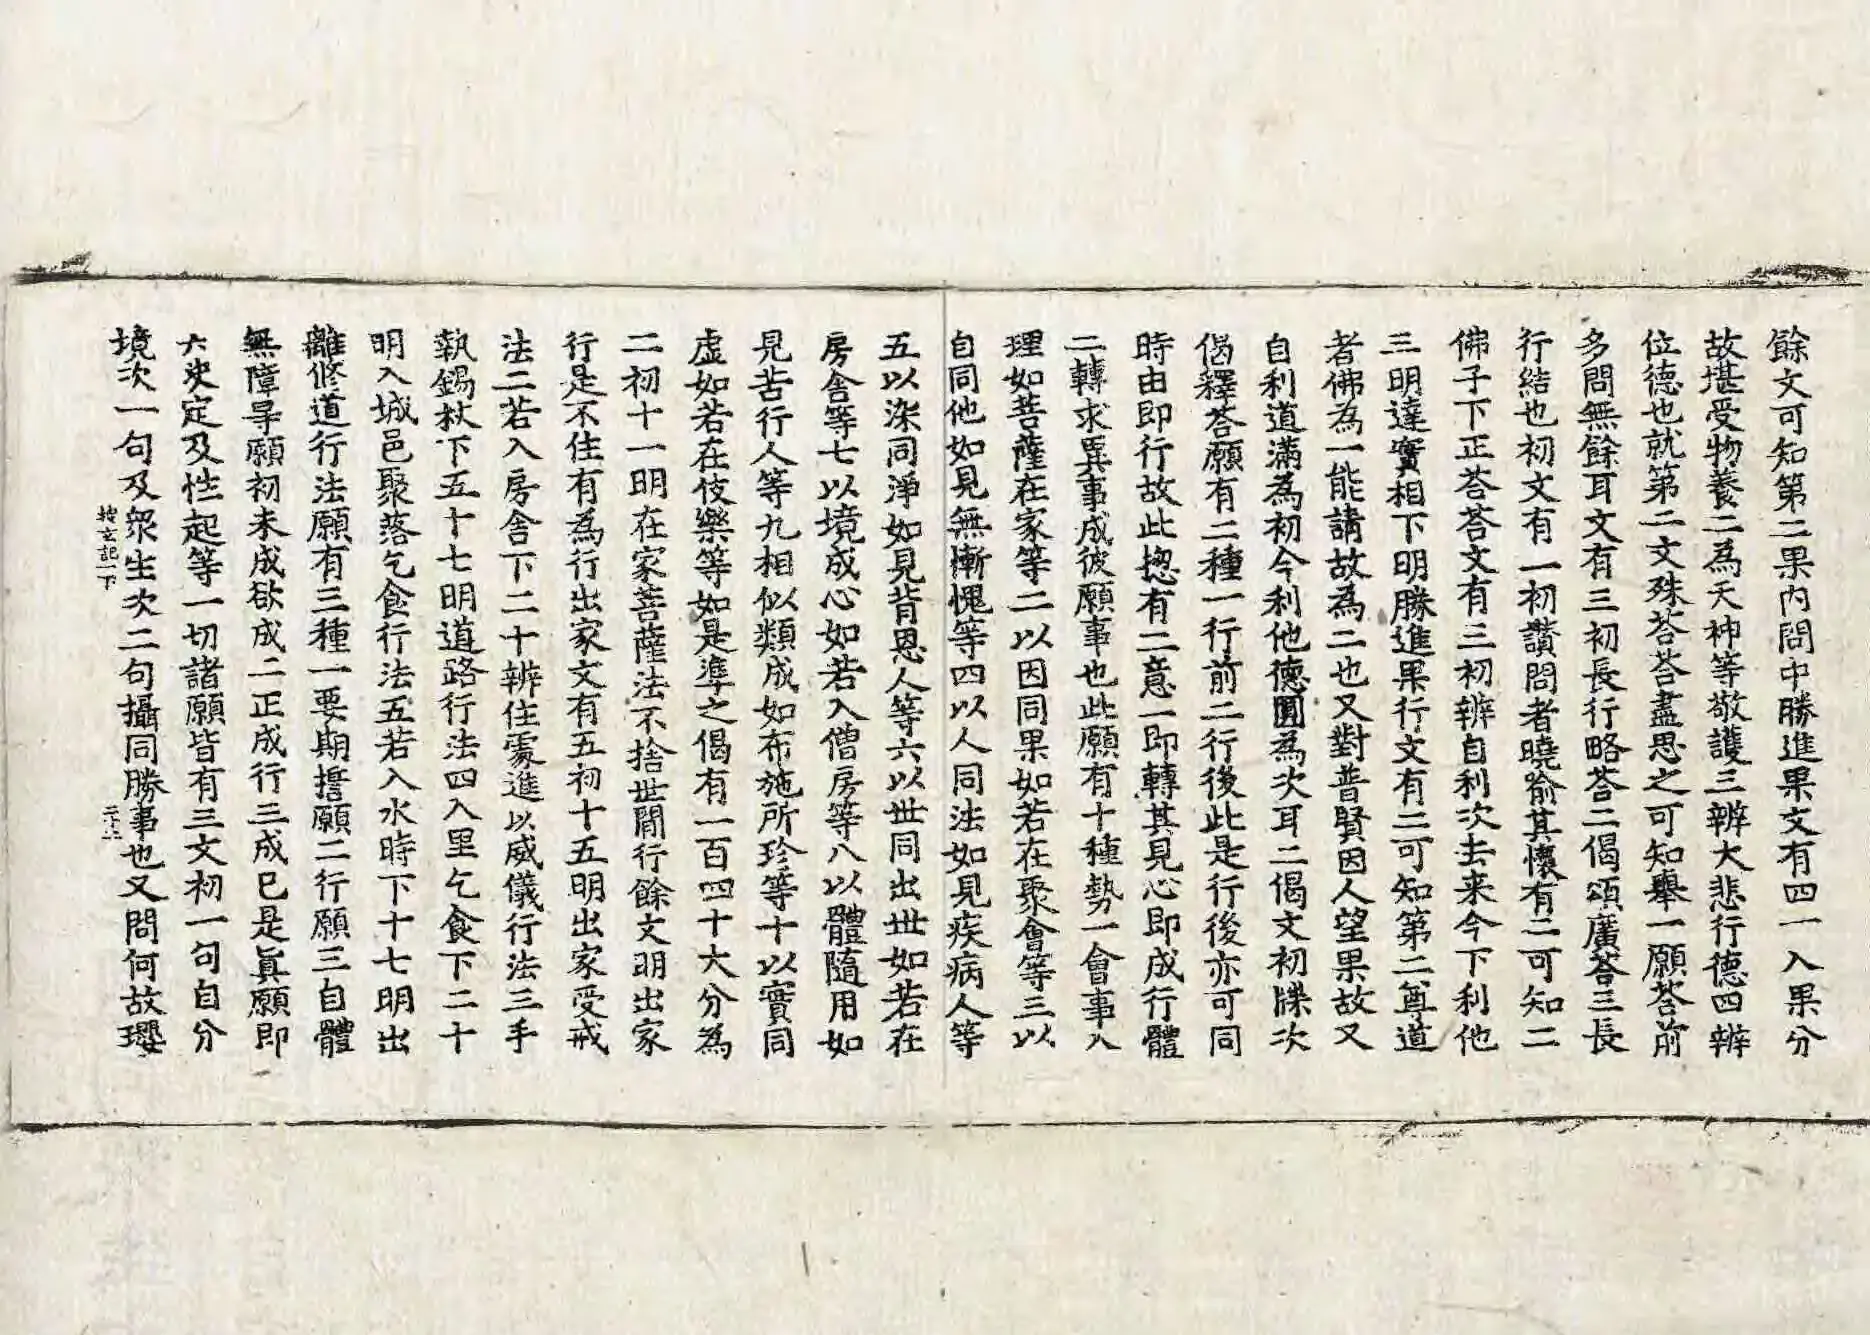 餘文可知第二果內問中勝進果文有四一入果分
故堪受物養二為天神等敬護三辨大悲行德四辨
位德也就第二文殊荅荅盡思之可知舉一願荅前
多問無餘耳文有三初長行略荅二偈頌廣荅三長
行結也初文有一初讚問者曉喻其懷有二可知二
佛子下正荅荅文有三初辨自利次去来今下利他
三明達實相下明勝進果行文有二可知第二尊道
者佛為一能請故為二也又對普賢因人望果故又
自利道滿為初今利他德圓為次耳二偈文初牒次
偈釋荅願有二種一行前二行後此是行後亦可同
時由即行故此揔有二意一即轉其見心即成行體
二轉求異事成彼願事也此願有十種勢一會事入
理如菩薩在家等二以因同果如若在聚會等三以
自同他如見無慚愧等四以人同法如見疾病人等
五以染同淨如見背恩人等六以世同出世如若在
房舍等七以境成心如若入僧房等八以體隨用如
見苦行人等九相似類成如布施所珍等十以實同
虛如若在伎樂等如是準之偈有一百四十大分為
二初十一明在家菩薩法不捨世間行餘文明出家
行是不住有為行出家文有五初十五明出家受戒
法二若入房舍下二十辨住處進以威儀行法三手
執錫杖下五十七明道路行法四入里乞食下二十
明入城邑聚落乞食行法五若入水時下十七明出
離修道行法願有三種一要期擔願二行願三自體
無障㝵願初未成欲成二正成行三成已是真願即
六決定及性起等一切諸願皆有三文初一句自分
境次一句及眾生次二句攝同勝事也又問何故瓔